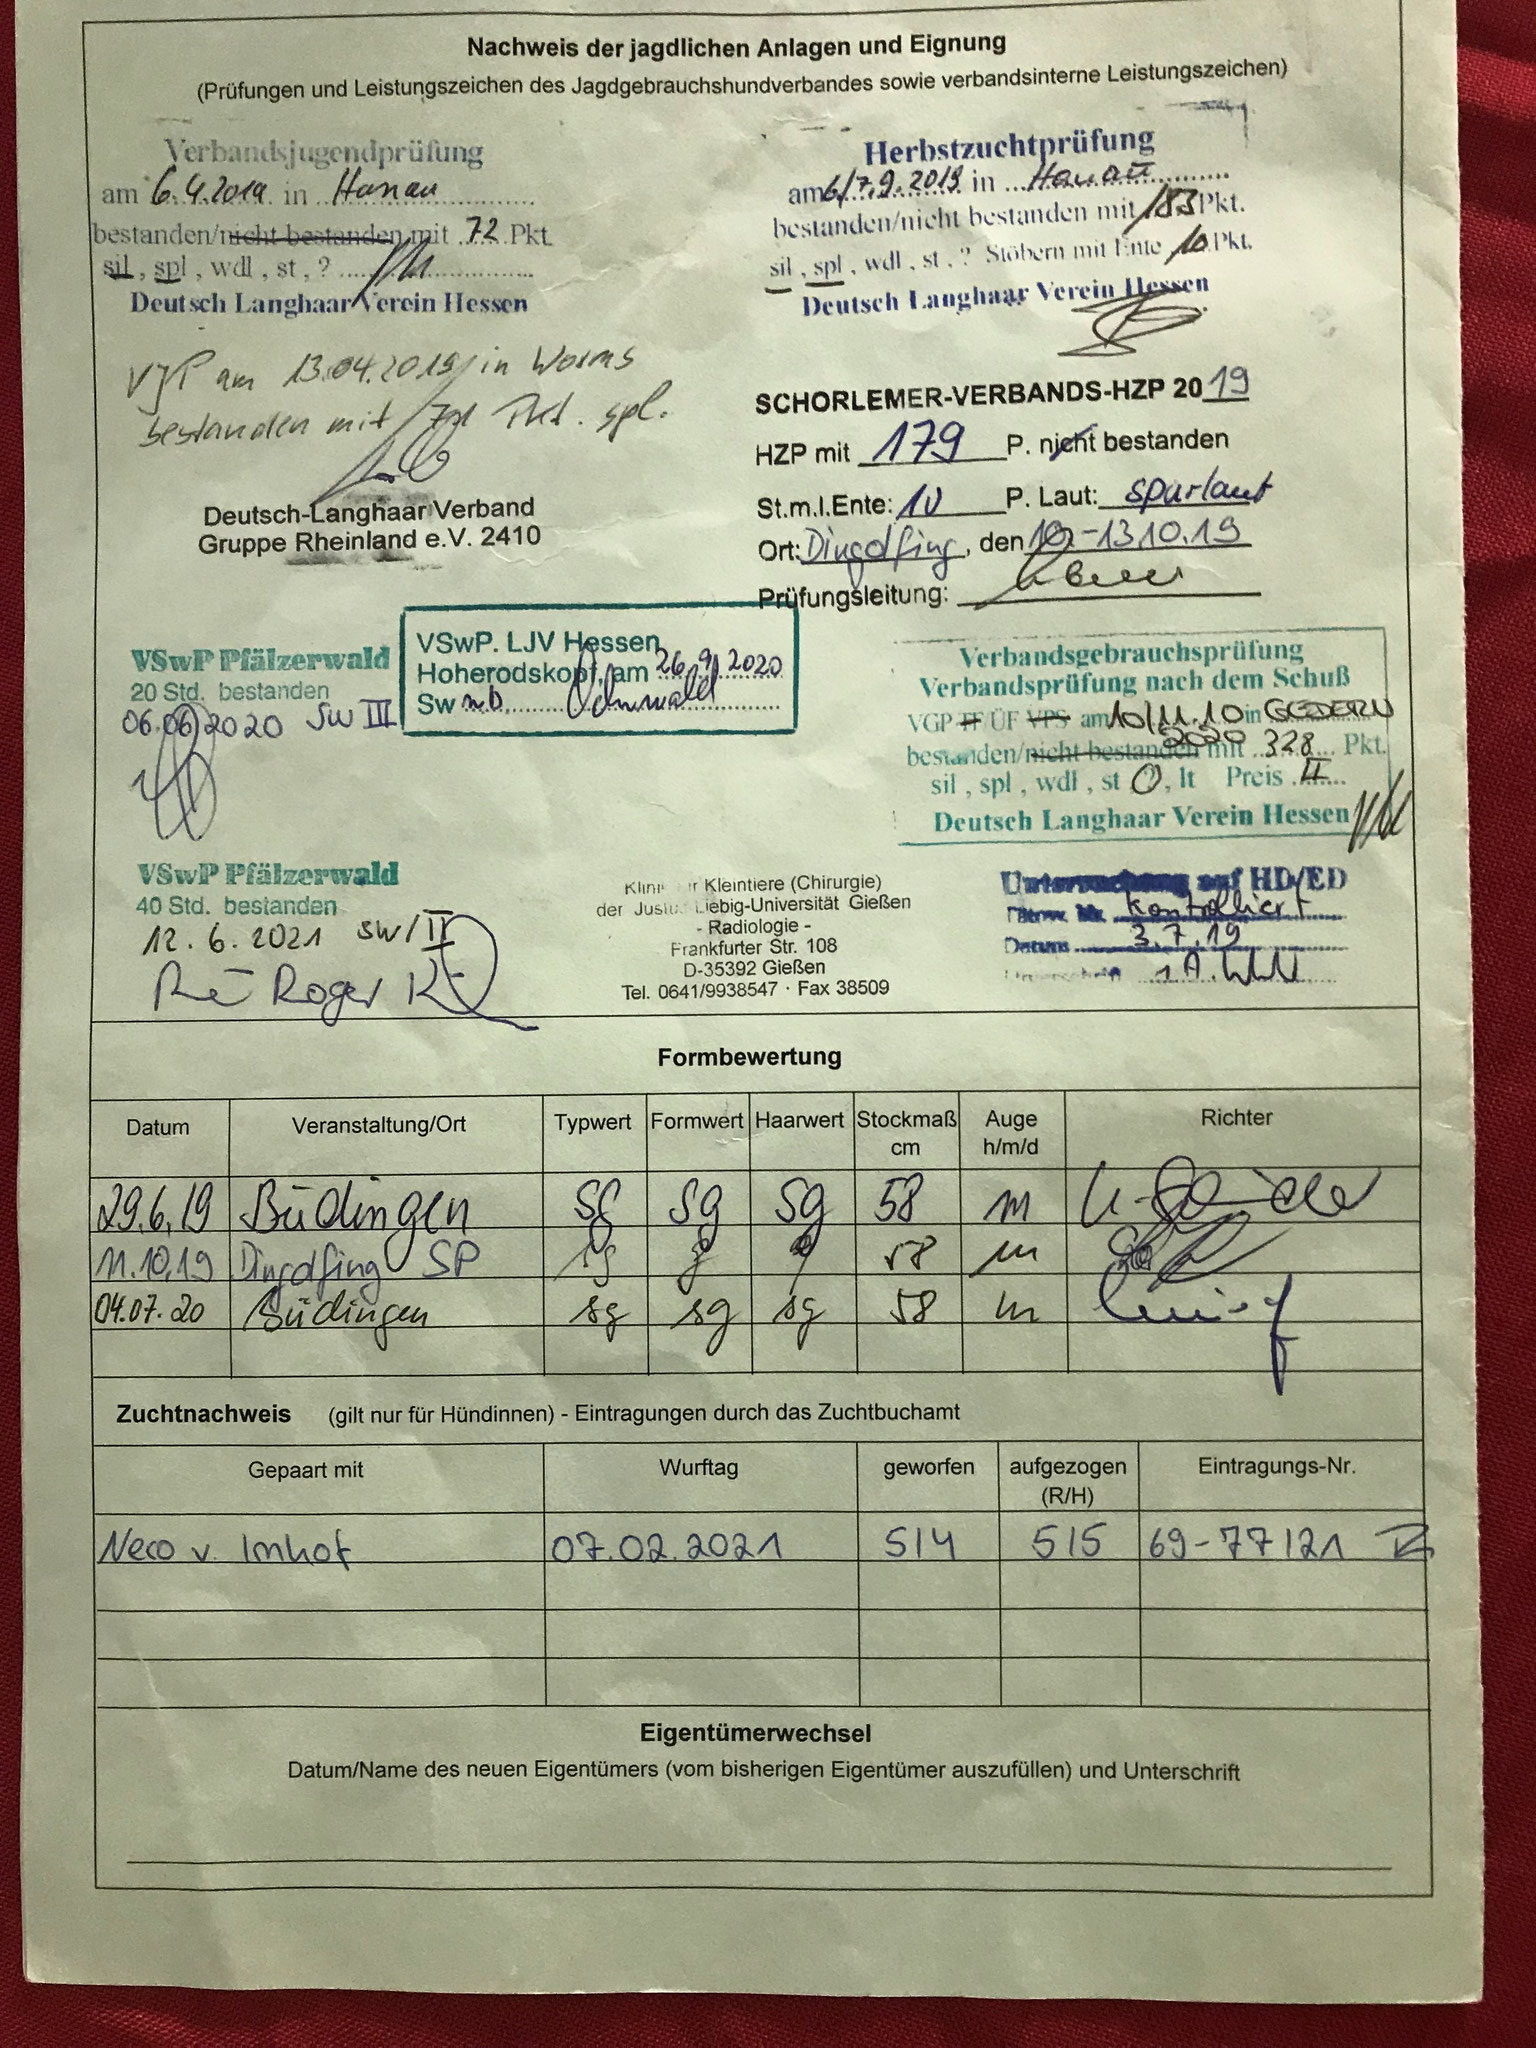 Nachweis der jagdlichen Anlagen und Eignung
(Prüfungen und Leistungszeichen des Jagdgebrauchshundverbandes sowie verbandsinterne Leistungszeichen)
Verbandsjugendprüfung
am 6.4.2019 in Hanau
bestanden/nicht bestanden mit 72 Pkt.
sil , spl , wdl , st , ?
Deutsch Langhaar Verein Hessen
VJP am 13.04.2019 in Worms
bestanden mit Pkt. spl.
Deutsch-Langhaar Verband
Gruppe Rheinland e.V. 2410
Herbstzuchtprüfung
am 6/7.9.2019 in Hanau
bestanden/nicht bestanden mit 183 Pkt.
sil , spl , wdl , st , ? Stöbern mit Ente 10 Pkt.
Deutsch Langhaar Verein Hessen
SCHORLEMER-VERBANDS-HZP 2019
HZP mit 179 P. nicht bestanden
St.m.l.Ente: 10 P. Laut: spurlaut
Ort: Dingolfing, den 10.-13.10.19
Prüfungsleitung:
VSwP Pfälzerwald
20 Std. bestanden
06.06.2020 SW III
VSwP. LJV Hessen
Hoherodskopf, am 26.9.2020
Sw n.b.
Verbandsgebrauchsprüfung
Verbandsprüfung nach dem Schuß
VGP TF ÜF VPS am 10/11.10 in GEDERN
2020
bestanden/nicht bestanden mit 328 Pkt.
sil , spl , wdl , st ?, lt Preis II
Deutsch Langhaar Verein Hessen
VSwP Pfälzerwald
40 Std. bestanden
12.6.2021 SW/II
Kleintiere (Chirurgie)
der Liebig-Universität Gießen
- Radiologie -
Frankfurter Str. 108
D-35392 Gießen
Tel. 0641/9938547 · Fax 38509
Untersuchung auf HD/ED
Kontrolliert
Datum 3.7.19
Unterschrift
Formbewertung
Datum Veranstaltung/Ort Typwert Formwert Haarwert Stockmaß cm Auge h/m/d Richter
29.6.19 Büdingen Sg Sg Sg 58 m
11.10.19 Dingolfing SP sg g g 58 m
04.07.20 Büdingen sg sg sg 58 m
Zuchtnachweis (gilt nur für Hündinnen) - Eintragungen durch das Zuchtbuchamt
Gepaart mit Wurftag geworfen aufgezogen (R/H) Eintragungs-Nr.
Neco v. Imhof 07.02.2021 5/4 5/5 69-77/21
Eigentümerwechsel
Datum/Name des neuen Eigentümers (vom bisherigen Eigentümer auszufüllen) und Unterschrift